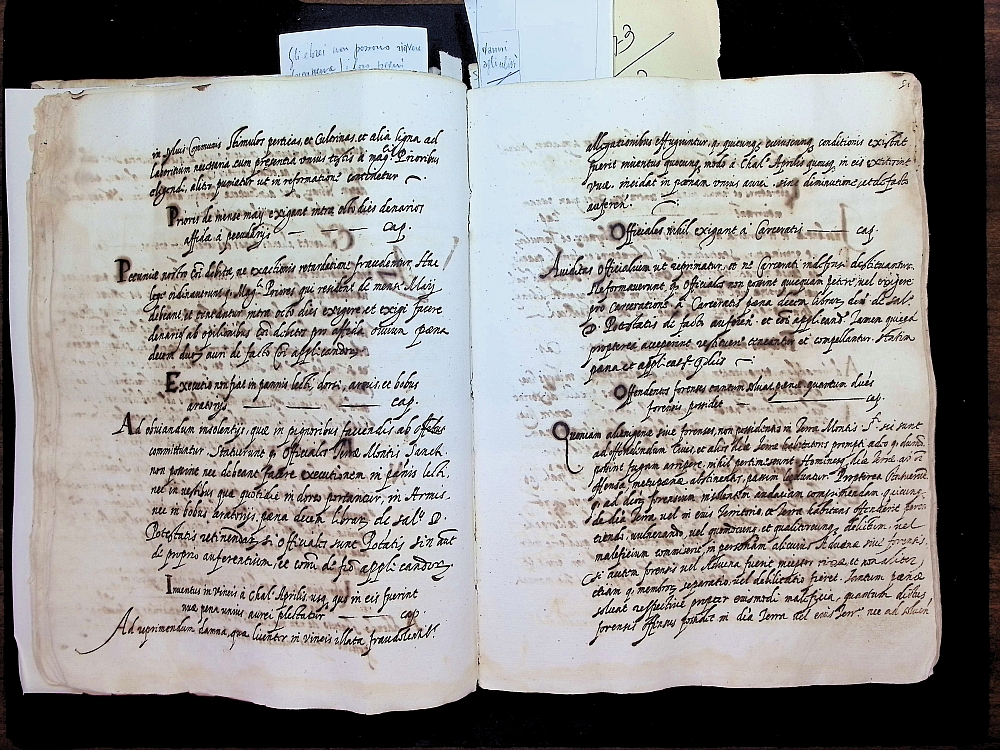 Gli ebrei non possono ricevere
73
51
in plus Communis Stimulos perticas, et Culorinas, et alia ligna, ad
laboritium necessaria cum presentia unius testis a mag.cis Prioribus
eligend. aliter puniatur ut in reformatione continetur
Priores de mense maij exigant intra octo dies denarios
affida a pecudarijs cap.
Pecuniae nostro Coi debitae, ne exactionis retardatione fraudentur, Hac
lege ordinaverunt q. Mag.ci Priores qui resident de mense Maij
debeant, et teneantur intra octo dies exigere, et exigi facere
denarios ab opilionibus Coi debitos pro affida ovium pæna
decem duc. auri de facto Coi applicandor.
Executio non fiat in pannis lecti, dorsi, armis, et bobus
aratorijs cap.
Ad obviandum insolentijs, quæ in pignoribus faciendis ab offitijs
committuntur. Statuerunt q. Officiales Terræ Montis Sanctı
non possint nec debeant facere executionem in pānis lecti,
nec in vestibus quæ quotidie in dorso portantur, in Armis,
nec in bobus aratorijs, pæna decem librar. de sal.º D.
Potestatis retinendar. si Officiales sunt Potatis sin aūt
de proprio auferentium, et comū de fcō applicandor.
Inventus in vineis à Chal. Aprilis usq. quo in eis fuerint
uvæ pena unius aurei plectatur cap.
Ad reprimendum damna, quæ in vineis illata fraudolenti
allegationibus effuguntur, q. quicunq. cuiuscunq. conditionis existat
fuerit inventus quocunq. modo à Chal. Aprilis quousq. in eis extiterint
uvæ, incidat in pœnam unius aurei, sine diminutione, et de facto
auferen.
Officiales nihil exigant à Carceratis cap.
Aviditas Officialium ut reprimatur, et ne Carcerati indefensi destituantur.
Reformaverunt, q. Officiales non possint quicquam petere, vel exigere
pro carceratione à Carceratis pæna decem librar. den. de sal.º
D. Potestatis de facto auferen. et coi applicand. Tamen quicqd
propterea acceperint restituere teneantur et compellantur, statim
pæna et applicat.
Offendentes forenses tantum solvat pænæ quantum dictus
forensis possidet cap.
Quoniam alienigenæ sive forenses, non possidentes in Terra Montis S.ti sic sunt
ad offendendum Cives, et alios dictæ Terræ habitatores prompti adeo q. dumō
possint fugam arripere, nihil pertimescunt. Homines dictæ Terræ ab eor
offensa metu pænæ abstinentes, passim leduntur. Propterea Statuerūt
q. ad dictor. forensium insolentem audaciam comprimendam, quicunq.
de dicta Terra vel in eius Territorio, et Terra habitans offenderit percu-
tiendo, vulnerando, vel quomocunq. et qualitercunq. delictum, vel
maleficium commiserit in personam alicuius Advenæ sive forensis,
Et autem forensis vel Advena fuerit
etiam q. membror. separatio, vel debilitatio fieret. Tantum pænæ
solvat respective propter eiusmodi maleficia, quantum dictus
forensis offensus possidet in dicta Terra vel eius Terr.º nec ad